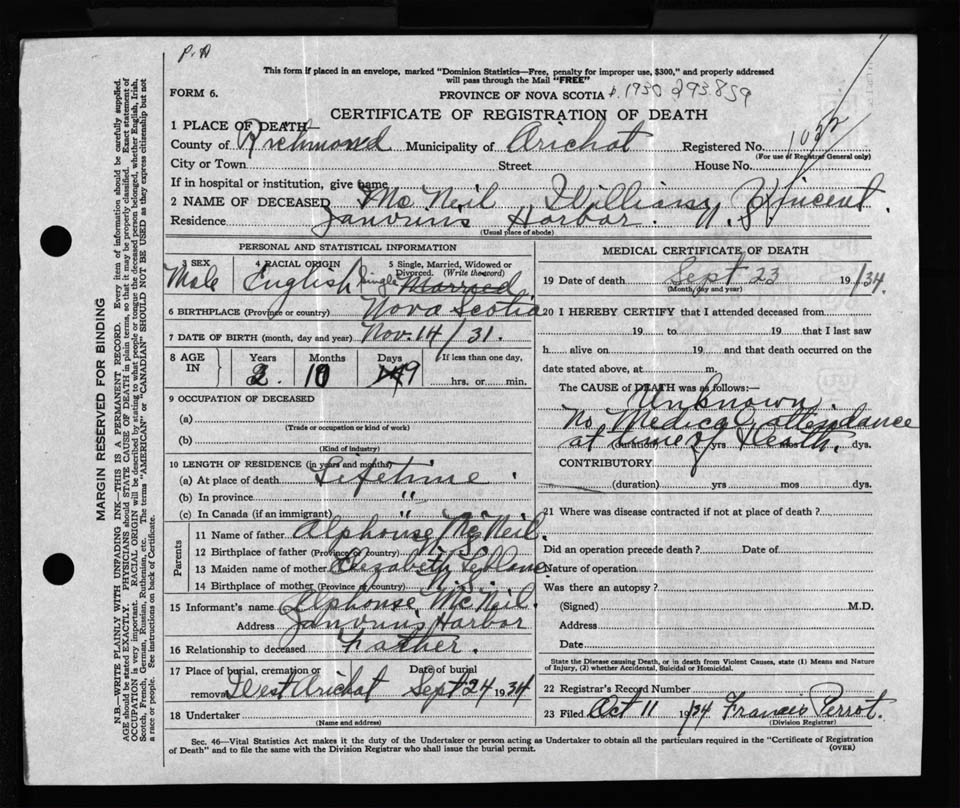 P.A
This form if placed in an envelope, marked "Dominion Statistics—Free, penalty for improper use, $300," and properly addressed
will pass through the Mail "FREE"
FORM 6.
PROVINCE OF NOVA SCOTIA 1930 293859
CERTIFICATE OF REGISTRATION OF DEATH
1 PLACE OF DEATH—
County of Richmond Municipality of Arichat Registered No. 1022
(For use of Registrar General only)
City or Town Street House No.
If in hospital or institution, give name
2 NAME OF DECEASED Mc Neil William Vincent.
Residence Janvrins Harbor. N. S.
(Usual place of abode)
PERSONAL AND STATISTICAL INFORMATION
3 SEX 4 RACIAL ORIGIN 5 Single, Married, Widowed or
Divorced. (Write the word)
Male English Single Married
6 BIRTHPLACE (Province or country) Nova Scotia
7 DATE OF BIRTH (month, day and year) Nov. 14/31.
8 AGE IN Years Months Days If less than one day,
2. 10 9 hrs. or min.
9 OCCUPATION OF DECEASED
(a)
(Trade or occupation or kind of work)
(b)
(Kind of industry)
10 LENGTH OF RESIDENCE (in years and months)
(a) At place of death Lifetime.
(b) In province "
(c) In Canada (if an immigrant) "
Parents
11 Name of father Alphonse McNeil.
12 Birthplace of father (Province or country) N. S.
13 Maiden name of mother Elizabeth Leblanc
14 Birthplace of mother (Province or country) N. S.
15 Informant's name Alphonse McNeil.
Address Janvrins Harbor
16 Relationship to deceased Father.
17 Place of burial, cremation or removal Date of burial
West Arichat Sept 24 1934
18 Undertaker
(Name and address)
MEDICAL CERTIFICATE OF DEATH
19 Date of death Sept 23 19/34.
(Month, day and year)
20 I HEREBY CERTIFY that I attended deceased from
19 to 19 that I last saw
h alive on 19 and that death occurred on the
date stated above, at m.
The CAUSE of DEATH was as follows:—
Unknown.
No Medical attendance
at time of death.
(duration) yrs mos dys.
CONTRIBUTORY
(duration) yrs mos dys.
21 Where was disease contracted if not at place of death?
Did an operation precede death? Date of
Nature of operation
Was there an autopsy?
(Signed) M.D.
Address
Date
State the Disease causing Death, or in death from Violent Causes, state (1) Means and Nature
of Injury, (2) whether Accidental, Suicidal or Homicidal.
22 Registrar's Record Number
23 Filed Oct 11 1934 Francis Perrot.
(Division Registrar)
Sec. 46—Vital Statistics Act makes it the duty of the Undertaker or person acting as Undertaker to obtain all the particulars required in the "Certificate of Registration
of Death" and to file the same with the Division Registrar who shall issue the burial permit.
(OVER)
MARGIN RESERVED FOR BINDING
N.B.—WRITE PLAINLY WITH UNFADING INK—THIS IS A PERMANENT RECORD. Every item of information should be carefully supplied.
AGE should be stated EXACTLY. PHYSICIANS should STATE CAUSE OF DEATH in plain terms, so that it may be properly classified. Exact statement of
OCCUPATION is very important. RACIAL ORIGIN will be described by stating to what people or tongue the deceased person belonged, whether English, Irish,
Scotch, French, German, Russian, Ruthenian, etc. The terms "AMERICAN" or "CANADIAN" SHOULD NOT BE USED as they express citizenship but not
a race or people. See instructions on back of Certificate.